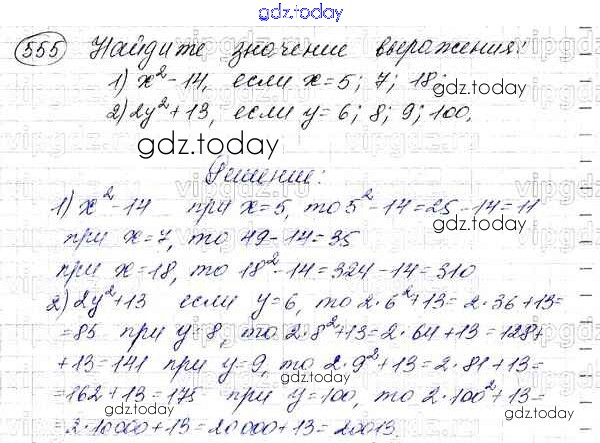 gdz.today
555 Найдите значение выражения:
1) x²-14, если x=5; 7; 18;
gdz.today
2) 2y²+13, если y=6; 8; 9; 100.
gdz.today
Решение:
1) x²-14 при x=5, то 5²-14=25-14=11
при x=7, то 49-14=35
при x=18, то 18²-14=324-14=310
2) 2y²+13 если y=6, то 2·6²+13=2·36+13=
=85 при y=8, то 2·8²+13=2·64+13=128+
+13=141 при y=9, то 2·9²+13=2·81+13=
=162+13=175 при y=100, то 2·100²+13=
=2·10000+13=20000+13=20013.
gdz.today
gdz.today
gdz.today